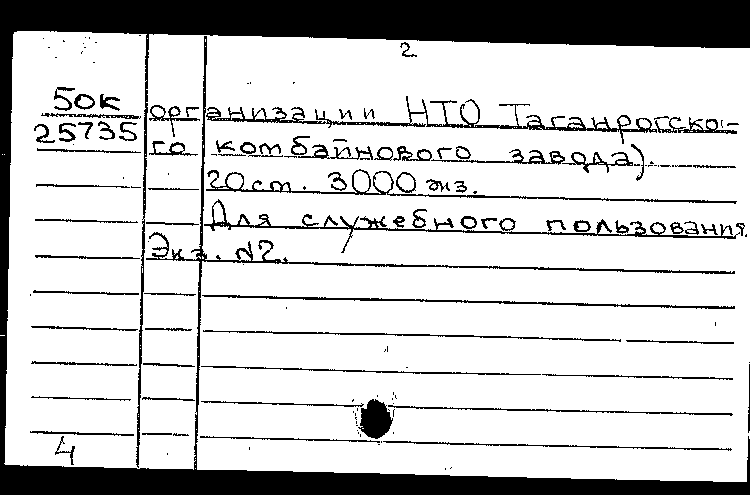 2
50к
25735
организации НТО Таганрогско-
го комбайнового завода).
20 ст. 3000 экз.
Для служебного пользования.
Экз. №2.
4